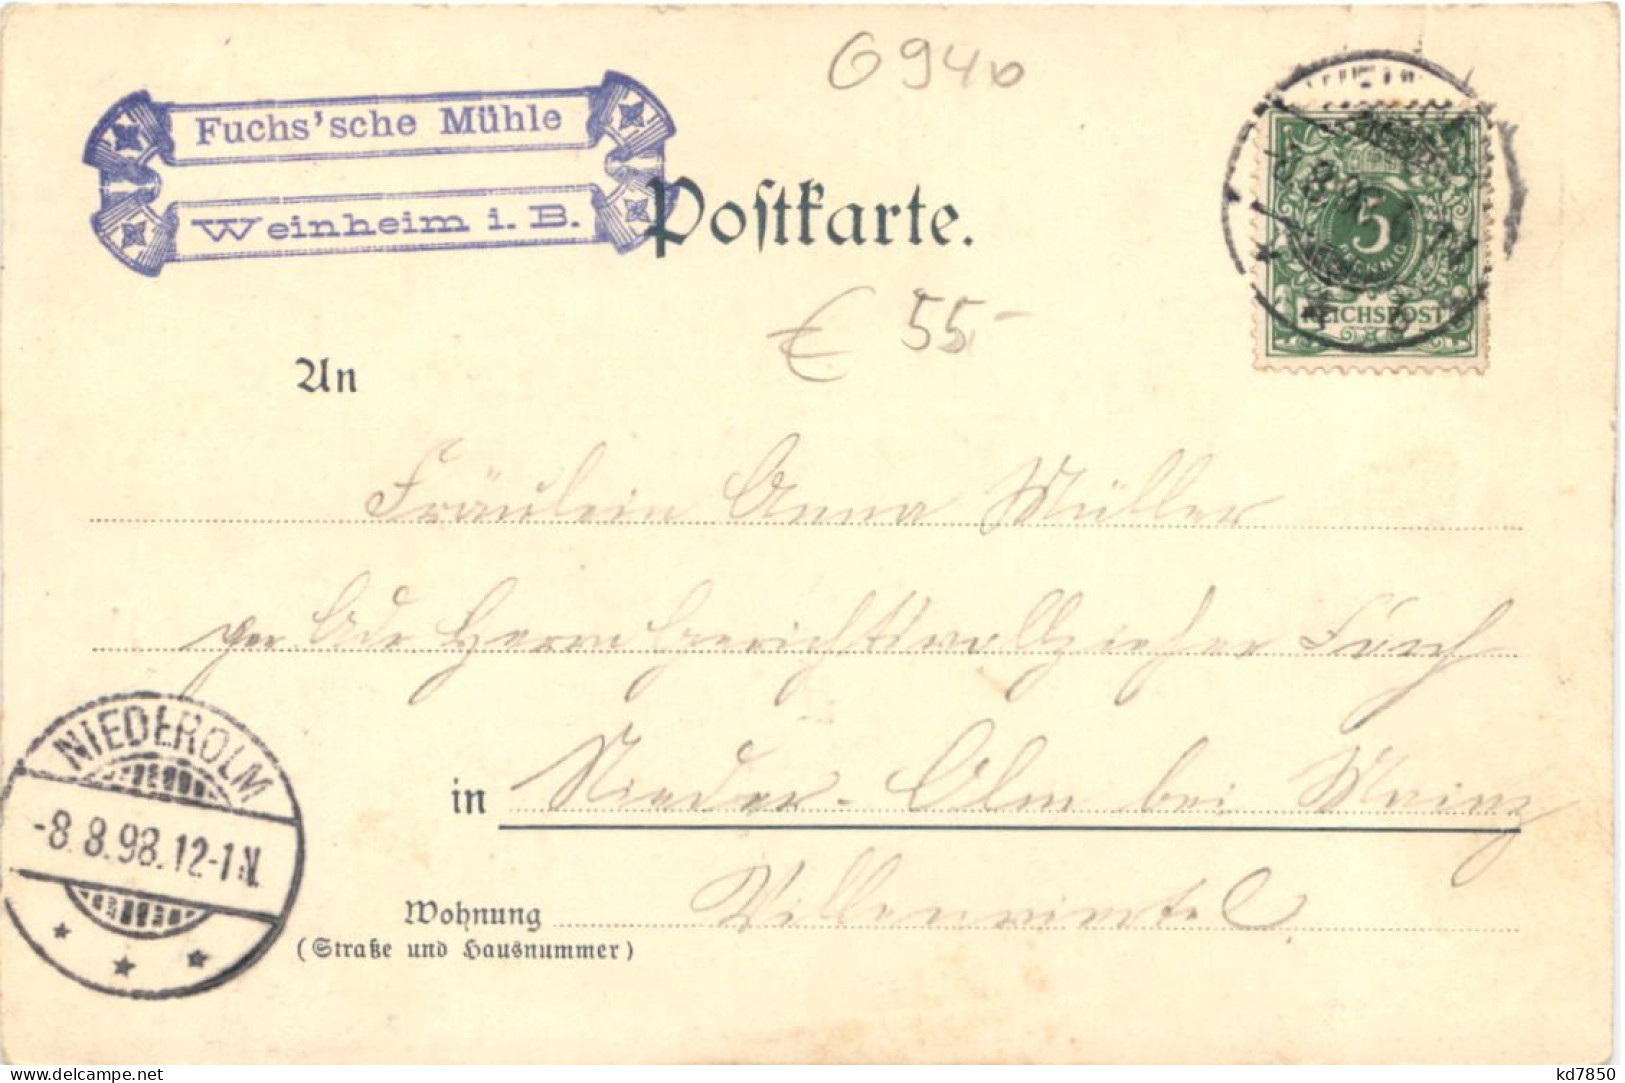 G940
Fuchs'sche Mühle
Weinheim i. B.
Postkarte.
5
PFENNIG
REICHSPOST
€ 55-
An
Fräulein Anna Müller
per Adr Herrn Gerichtsvollzieher
in Nieder-Olm bei Mainz
NIEDEROLM
-8.8.98.12-1N.
Wohnung Villenviertel
(Straße und Hausnummer)
delcampe.net
kd7850